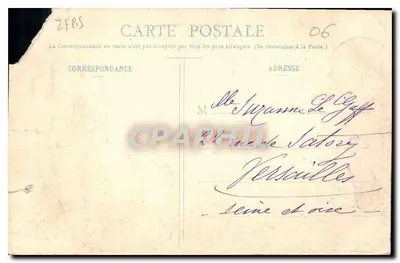 2FRS
CARTE POSTALE
06
La Correspondance au recto n'est pas acceptée par tous les pays étrangers. (Se renseigner à la Poste.)
CORRESPONDANCE
ADRESSE
M lle Suzanne Le Goff
CPARAMA
22 rue de Satory
Versailles
Seine et oise